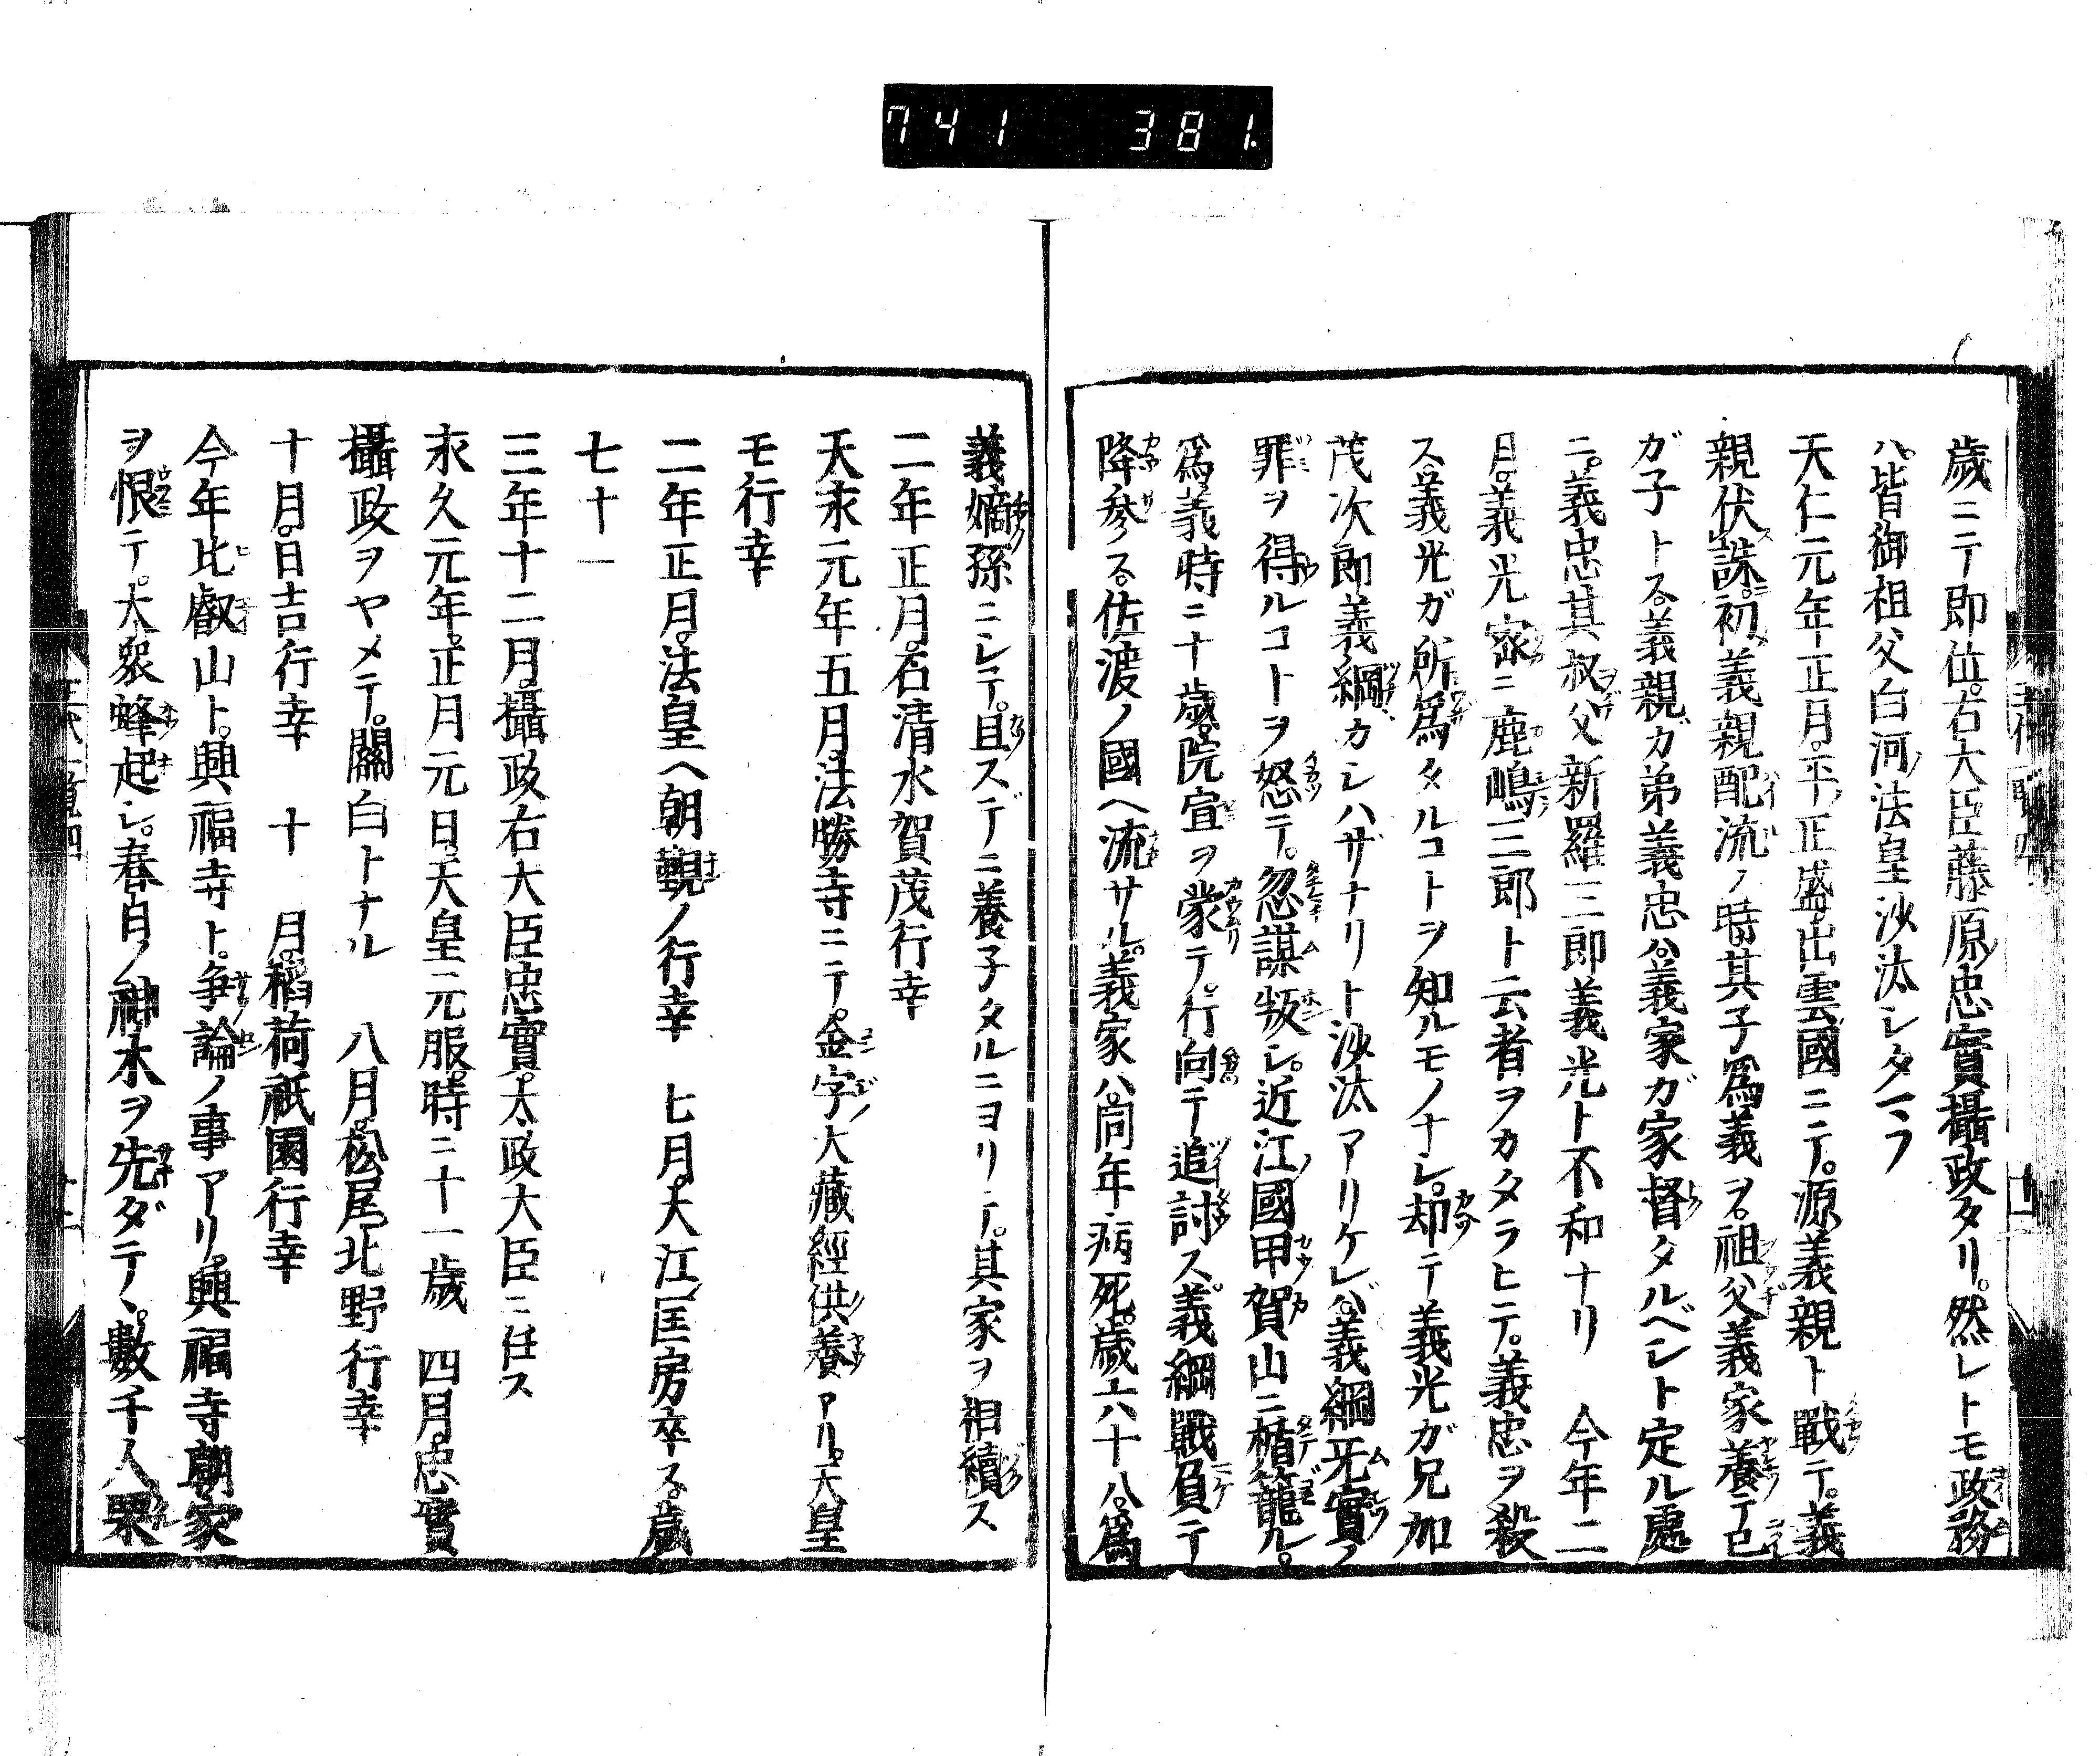 741 381.
歳ニテ即位。右大臣藤原忠實攝政タリ。然レトモ政務
ハ。皆御祖父白河法皇沙汰シタマフ
天仁元年正月。平正盛出雲國ニテ。源義親ト戰テ。義
親伏誅。初義親配流ノ時其子爲義ヲ。祖父義家養テ己
ガ子トス。義親ガ弟義忠ハ。義家ガ家督タルベシト定ル處
ニ。義忠其叔父新羅三郎義光ト不和ナリ 今年二
月。義光密ニ鹿嶋三郎ト云者ヲカタラヒテ。義忠ヲ殺
ス。義光ガ所爲タルコトヲ知ルモノナシ。却テ義光ガ兄加
茂次郎義綱カシハザナリト沙汰アリケレバ。義綱无實ノ
罪ヲ得ルコトヲ怒テ。忽謀叛シ。近江國甲賀山ニ楯籠ル。
爲義時ニ十歳。院宣ヲ蒙テ。行向テ追討ス。義綱戰負テ
降參ス。佐渡ノ國ヘ流サル。義家ハ。同年病死。歳六十八。爲
義嫡孫ニシテ。且スデニ養子タルニヨリテ。其家ヲ相續ス
二年正月。石清水賀茂行幸
天永元年五月。法勝寺ニテ。金字大藏經供養アリ。天皇
モ行幸
二年正月。法皇ヘ朝覲ノ行幸 七月。大江匡房卒ス。歳
七十一
三年十二月。攝政右大臣忠實。太政大臣ニ任ス
永久元年。正月元日。天皇元服。時ニ十一歳 四月。忠實
攝政ヲヤメテ。關白トナル 八月。松尾北野行幸
十月。日吉行幸 十 月。稻荷祇園行幸
今年比叡山ト。興福寺ト。爭論ノ事アリ。興福寺朝家
ヲ恨テ。大衆蜂起シ。春日ノ神木ヲ先ダテヽ。數千人